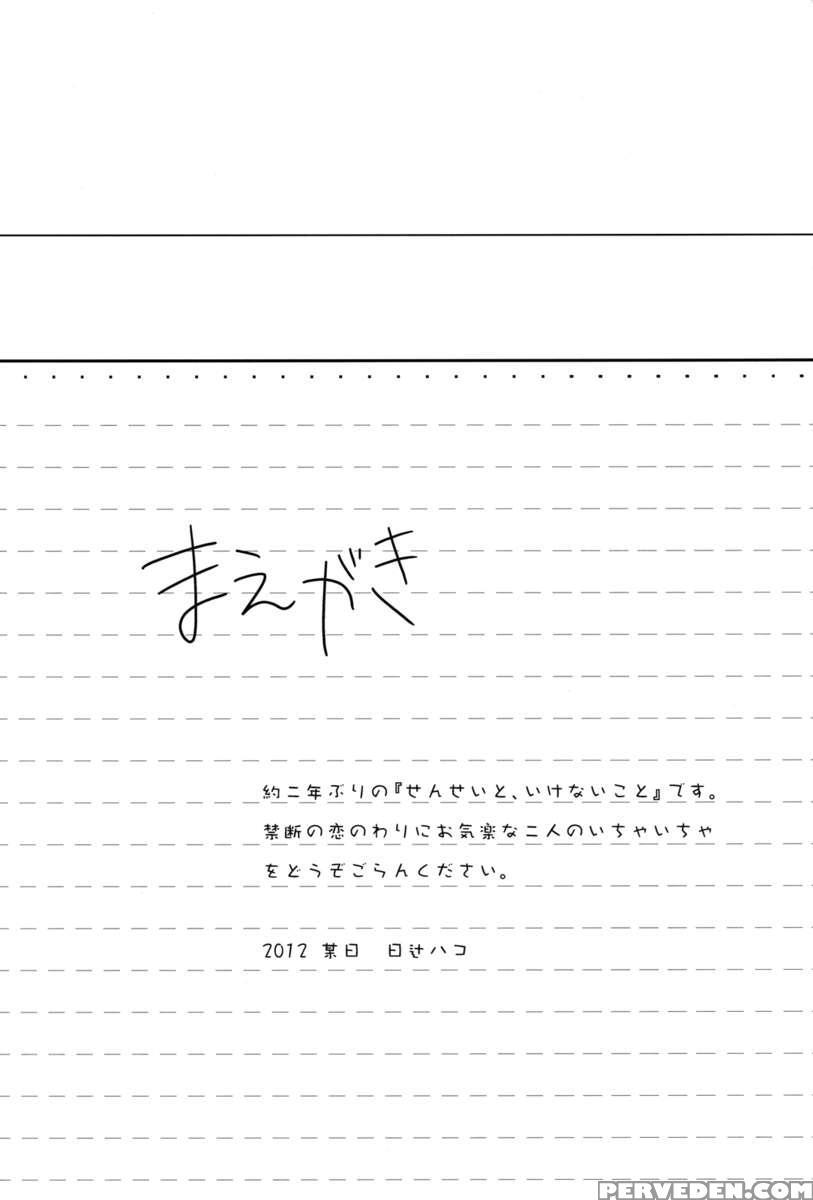 PERVEDEN.COM
まえがき
約二年ぶりの『せんせいと、いけないこと』です。
禁断の恋のわりにお気楽な二人のいちゃいちゃ
をどうぞごらんください。
2012 某日 日辻ハコ
PERVEDEN.COM